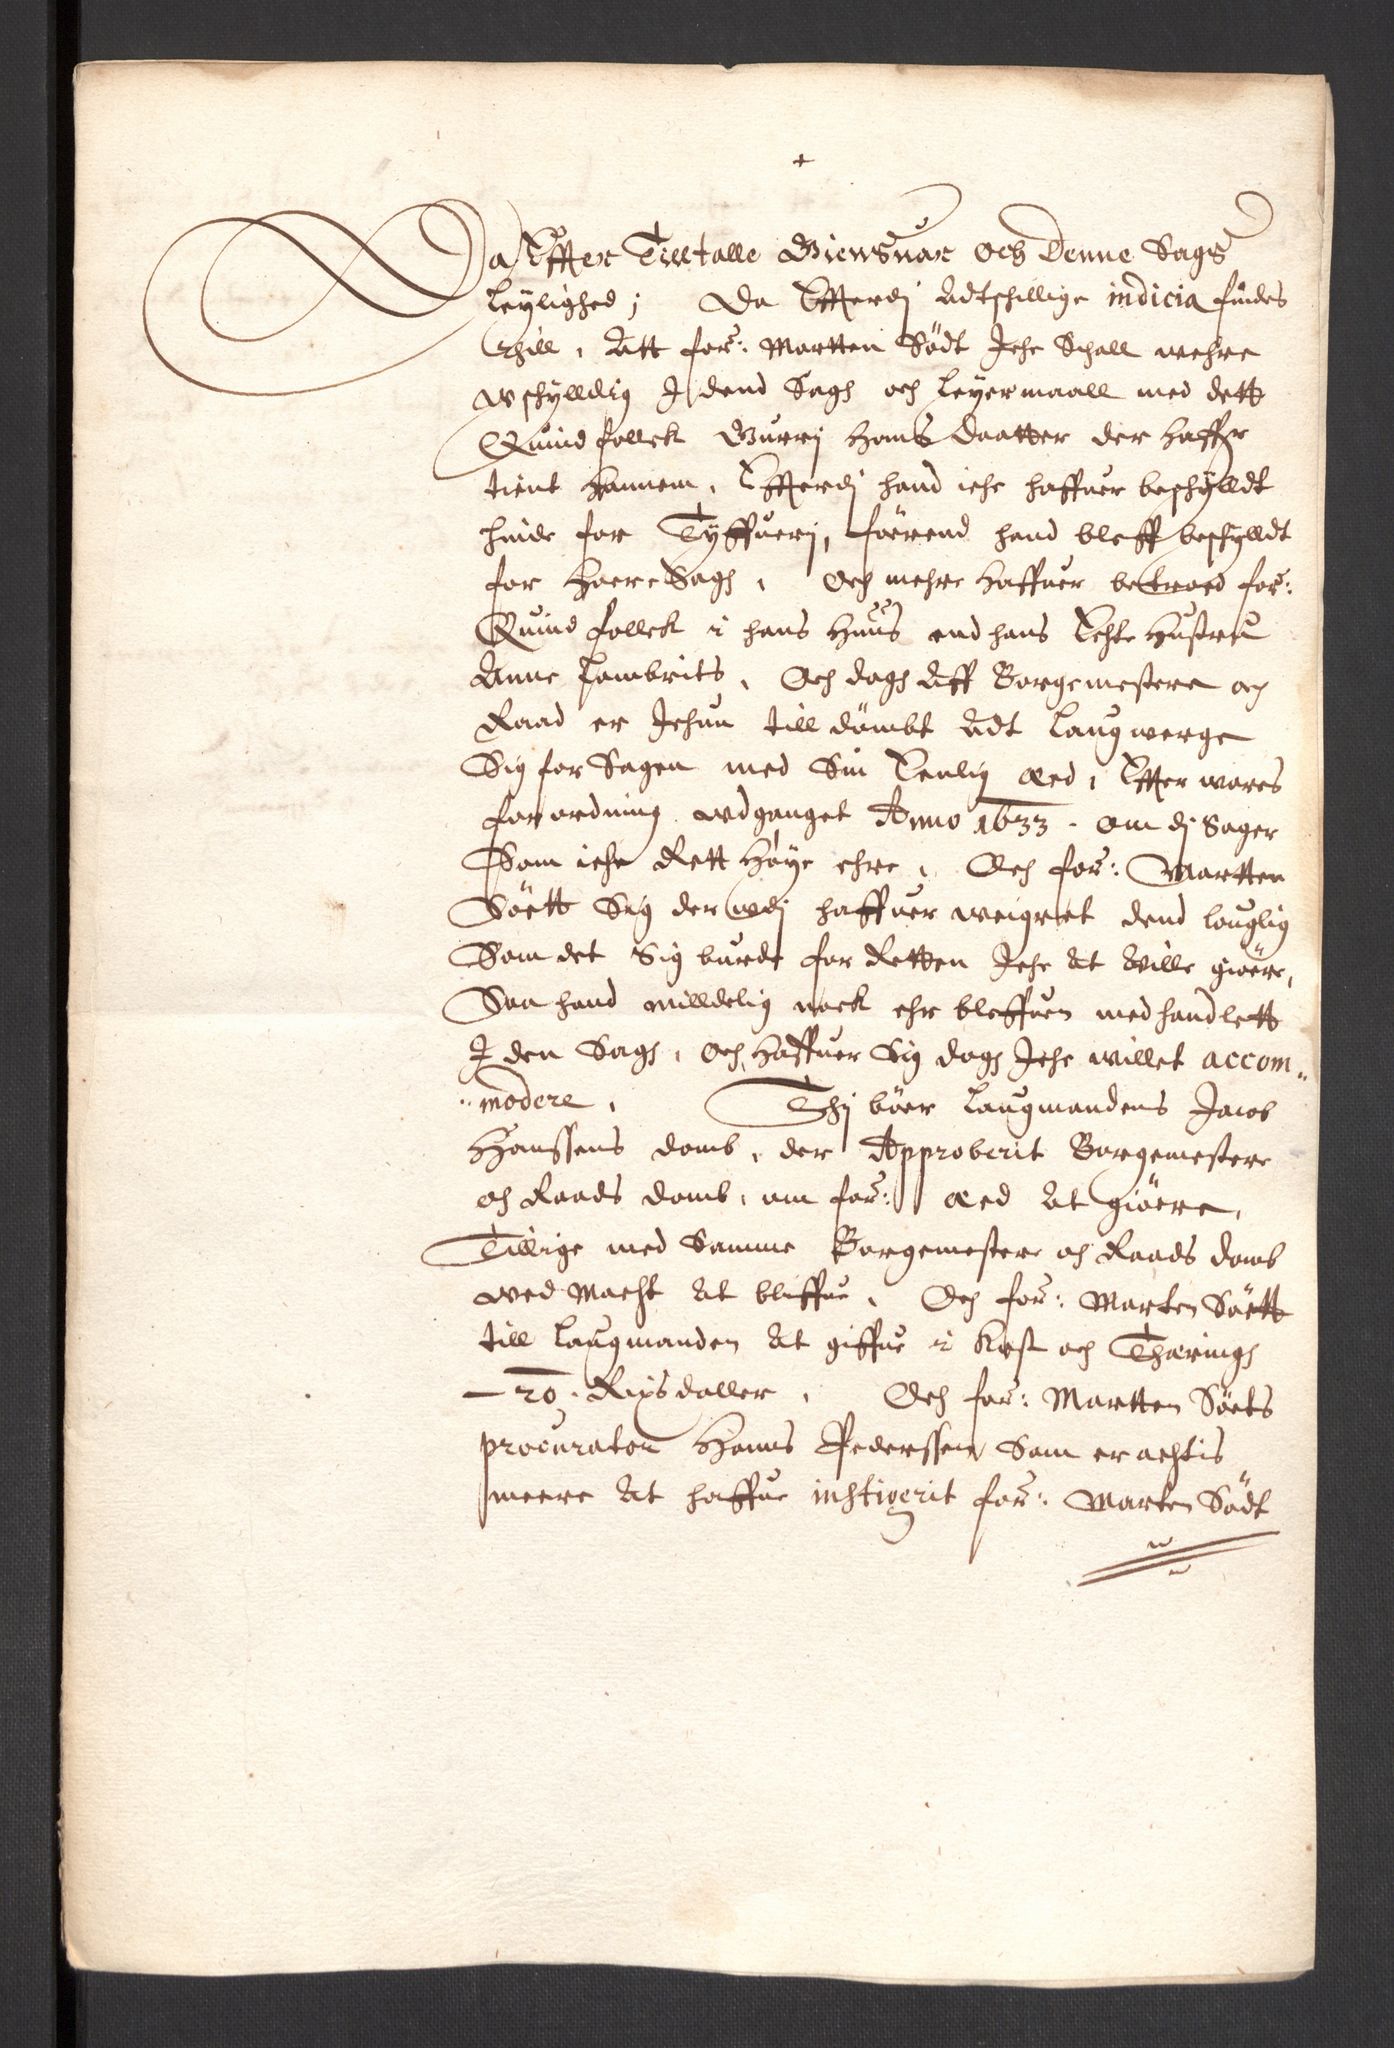 Da Effter Tilltalle Giensuar Och Denne Sags
Leylighed; Da Effterdj Adtschillige indicia findes
thill, Att for: Martten Södt Iche Schall wehre
wschylldig I dend Sag och Leyermaall med dett
Quindfollck Gurrj Hans Daatter der Haffr
tient Hannem, Effterdj hand iche haffuer beschylldt
hinde for Tyffuerj, förend hand bleff beschylldt
for Hoere Sag, Och mehre Haffuer betroed for:
Quindfollck i hans Huus end hans Echte Hustru
Anne Lambrits, Och dog Aff Borgemestere och
Raad er Ichun till dömbt Adt Laugwerge
Sig for Sagen med Sin Eenlig æed, Effter wores
forordning wdganget Anno 1633. om dj Sager
Som iche Rett Høye ehre, Och for: Martten
Söett Sig der wdj haffuer weigret dend louglig
Som det Sig burde for Retten Iche At wille giöre,
Saa hand milldelig nock ehr bleffuen medhandlett
I den Sag, och Haffuer Sig dog Iche willet accom-
modere, Thj böer Laugmandens Jacob
Hanssens domb, der Approberit Borgemestere
och Raads domb, om for: æed At giöere,
Tillige med Samme Borgemestere och Raads domb
wed Macht At bliffue, Och for: Marten Söett
till Laugmanden At giffue i Kost och Thærings
20. Rixdaller, Och for: Martten Söets
procurator Hanns Pederssen Som er achtis
meere At haffue instigerit for: Marten Södt